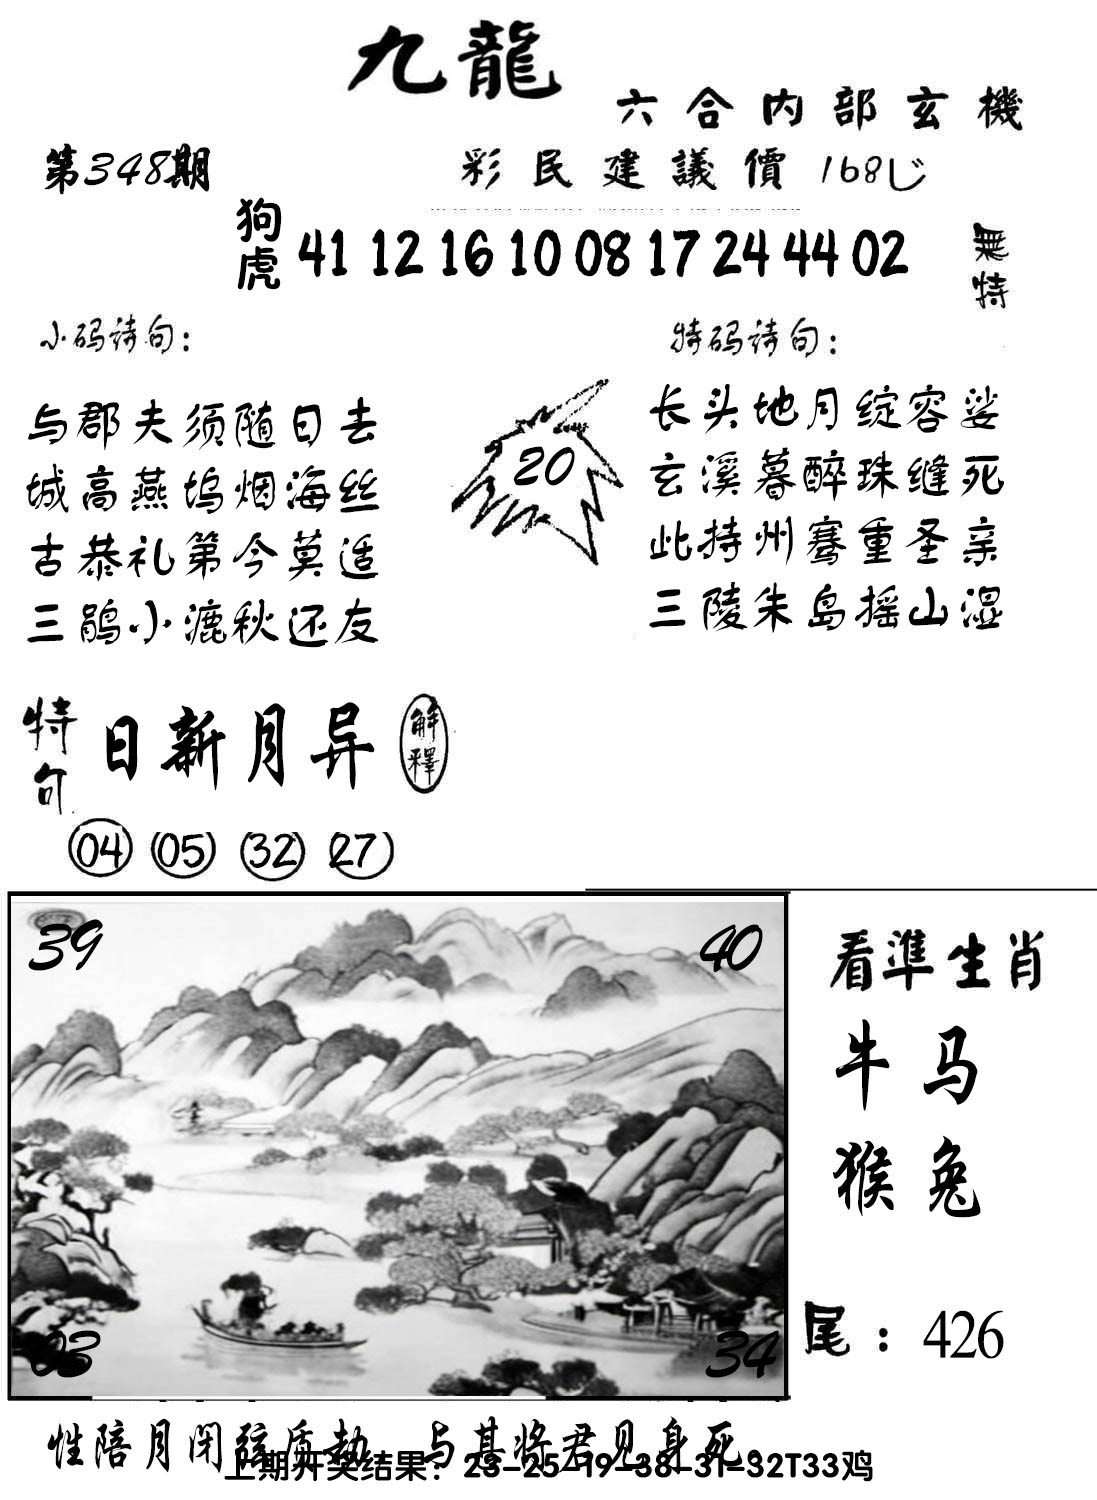 九龍
六合内部玄機
第348期
彩民建議價 168
狗虎 41 12 16 10 08 17 24 44 02
無特
小码诗句：
与郡夫须随日去
城高燕坞烟海丝
古恭礼第今莫适
三鹃小漉秋还友
20
特码诗句：
长头地月绽容娑
玄溪暮醉珠缝死
此持州骞重圣亲
三陵朱岛摇山湿
特句 日新月异 解釋
04 05 32 27
39 40
03 34
看準生肖
牛马
猴兔
尾：426
性陪月闭 质劫 与其将君见身死。
上期开奖结果：23-25-19-38-31-32T33鸡